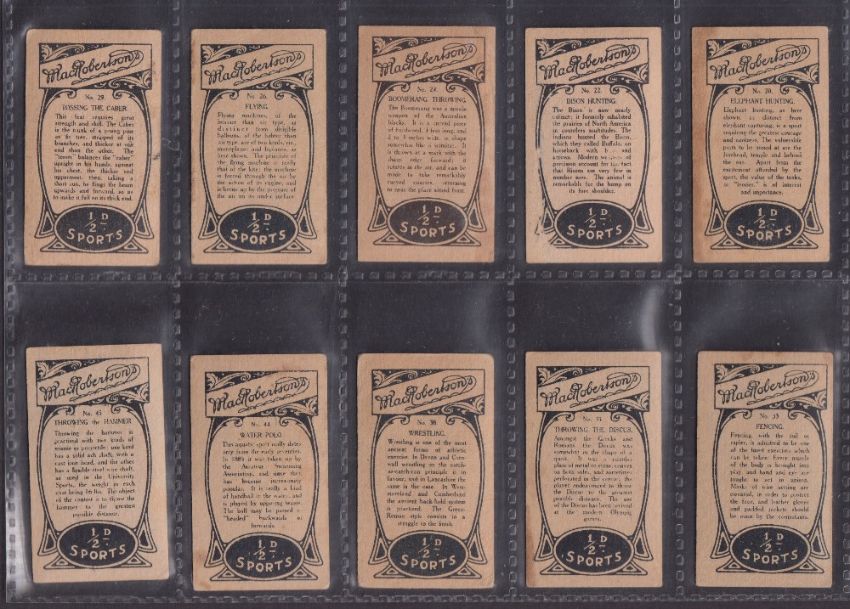 MacRobertson's
No. 29.
TOSSING THE CABER
This feat requires great
strength and skill. The Caber
is the trunk of a young pine
or fir tree, stripped of its
branches, and thicker at one
end than the other. The
balances the "caber"
upright in his hands, against
his chest, the thicker end
uppermost then, taking a
short run, he flings the beam
upwards and forward, so as
to make it fall on its thick end.
½ D
SPORTS
MacRobertson's
No. 26.
FLYING.
Flying machines, of the
heavier than air type, as
distinct from dirigible
balloons, of the lighter than
air type, are of two kinds, etc.,
monoplane and biplane, as
here shown. The principle of
the flying machine is really
that of the kite; the machine
is forced through the air by
the action of its engine, and
is borne up by the pressure of
the air on its under surface
½ D
SPORTS
MacRobertson's
No. 24.
BOOMERANG THROWING.
The Boomerang was a missile
weapon of the Australian
blacks. It is a curved piece
of hardwood, 2 feet long, and
2 to 3 inches wide, in shape
somewhat like a sickle. It
is thrown at a mark with the
sharp edge forward; it
rotates in the air, and can be
made to take remarkably
curved courses, returning
to near the place aimed from.
½ D
SPORTS
MacRobertson's
No. 22.
BISON HUNTING.
The Bison is now nearly
extinct; it formerly inhabited
the prairies of North America
in countless multitudes. The
Indians hunted the Bison,
which they called Buffalo, on
horseback with
arrows. Modern
precision account for the fact
that Bisons are very few in
number now. The animal is
remarkable for the hump on
its fore shoulder.
½ D
SPORTS
MacRobertson's
No. 20.
ELEPHANT HUNTING.
Elephant hunting, as here
shown, as distinct from
elephant capturing, is a sport
requiring the greatest courage
and coolness. The vulnerable
parts to be aimed at are the
forehead, temple and behind
the ear. Apart from the
excitement afforded by the
sport, the value of the tusks,
or "ivories," is of interest
and importance.
½ D
SPORTS
MacRobertson's
No. 45
THROWING the HAMMER
Throwing the hammer is
practised with two kinds of
one kind
has a solid ash shaft, with a
cast iron head, and the other
has a flexible steel wire shaft,
as used in the University
Sports, the weight in each
case being 16-lbs. The object
of the contest is to throw the
hammer to the greatest
possible distance.
½ D
SPORTS
MacRobertson's
No. 44
WATER POLO.
This aquatic sport really dates
only from the early seventies.
In 1885 it was taken up by
the Amateur Swimming
Association, and since then
has become increasingly
popular. It is really a kind
of handball in the water, and
is played by opposing teams.
The ball may be passed or
"headed" backwards or
forwards.
½ D
SPORTS
MacRobertson's
WRESTLING.
Wrestling is one of the most
ancient forms of athletic
exercise. In Devon and Corn-
wall wrestling to the catch-
as-catch-can principle is in
favour, and in Lancashire the
same is the case. In West-
moreland and Cumberland the
ancient back-hold system
is practised. The Greco-
Roman style consists in a
struggle to the finish
½ D
SPORTS
MacRobertson's
THROWING THE DISCUS.
Amongst the Greeks and
Romans the Discus was
somewhat in the shape of a
quoit. It was a circular
plate of metal or stone, convex
on both sides, and sometimes
perforated in the centre; the
player endeavoured to throw
the Discus to the greatest
possible distance. The use
of the Discus has been revived
at the modern Olympic
games.
½ D
SPORTS
MacRobertson's
FENCING.
Fencing, with the foil or
rapier, is admitted to be one
of the finest exercises which
can be taken. Every muscle
of the body is brought into
play, and hand and eye are
taught to act in unison.
Masks of wire netting are
essential, in order to protect
the face, and leather gloves
and padded jackets should
be worn by the combatants.
½ D
SPORTS